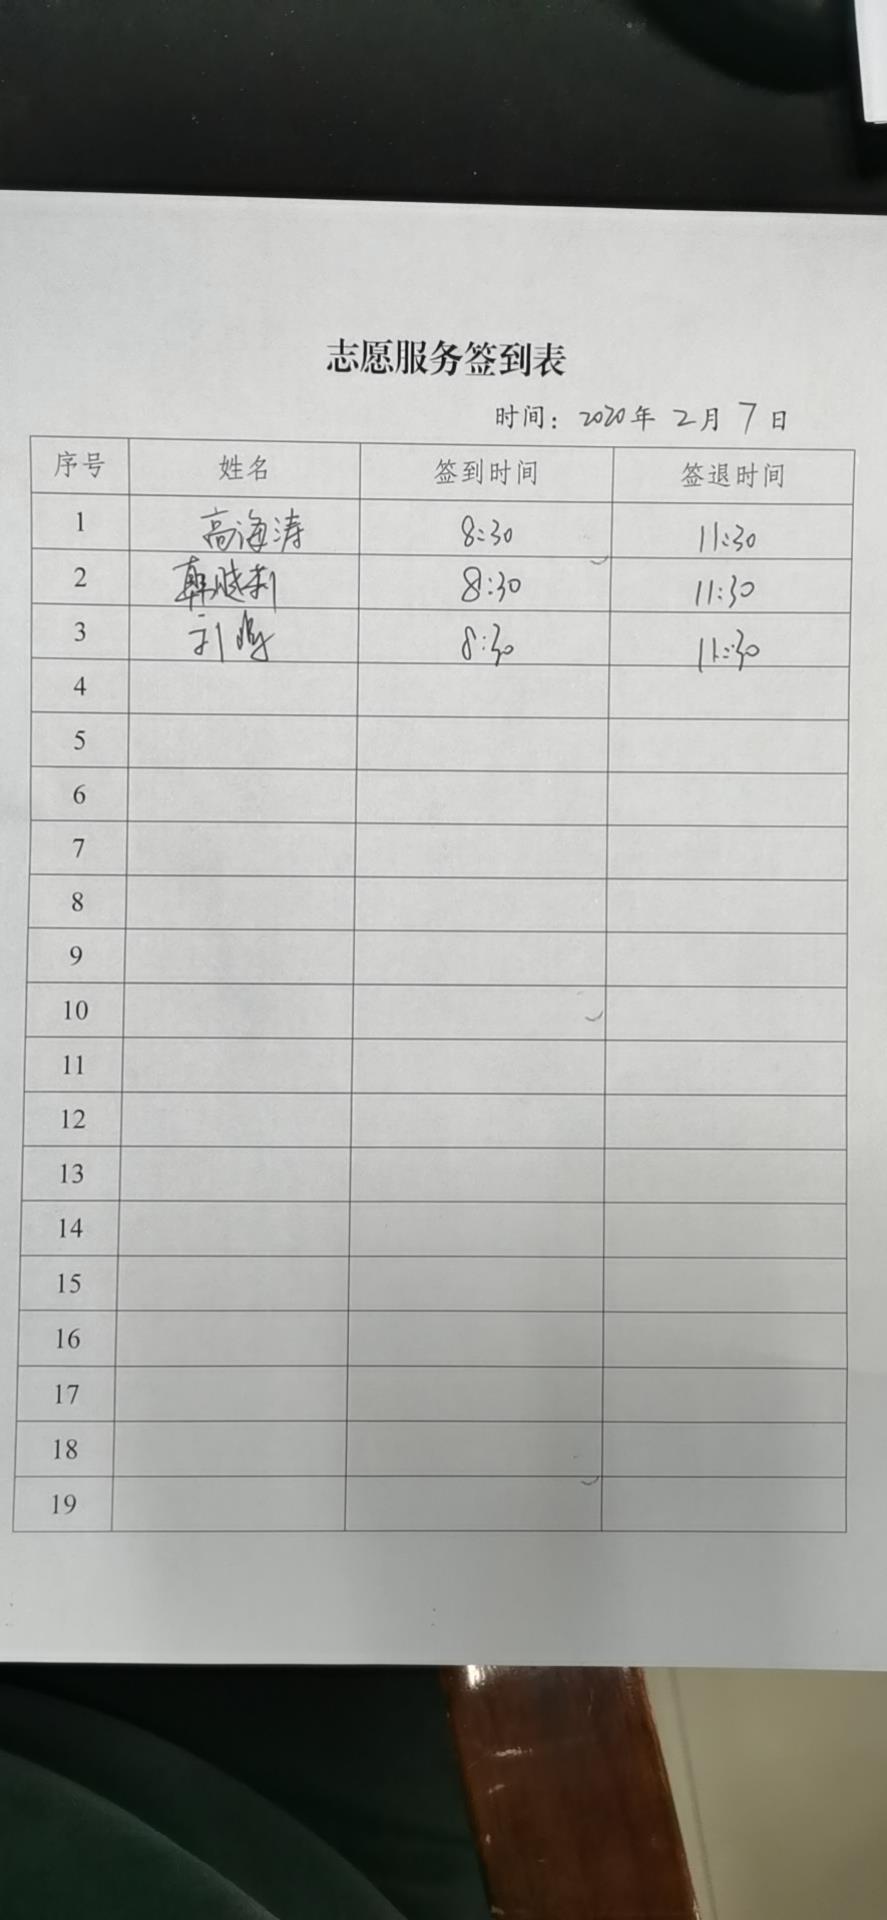 志愿服务签到表
时间：2020年 2月 7日
序号 姓名 签到时间 签退时间
1 高海涛 8:30 11:30
2 韩晓莉 8:30 11:30
3 刘 8:30 11:30
4
5
6
7
8
9
10
11
12
13
14
15
16
17
18
19